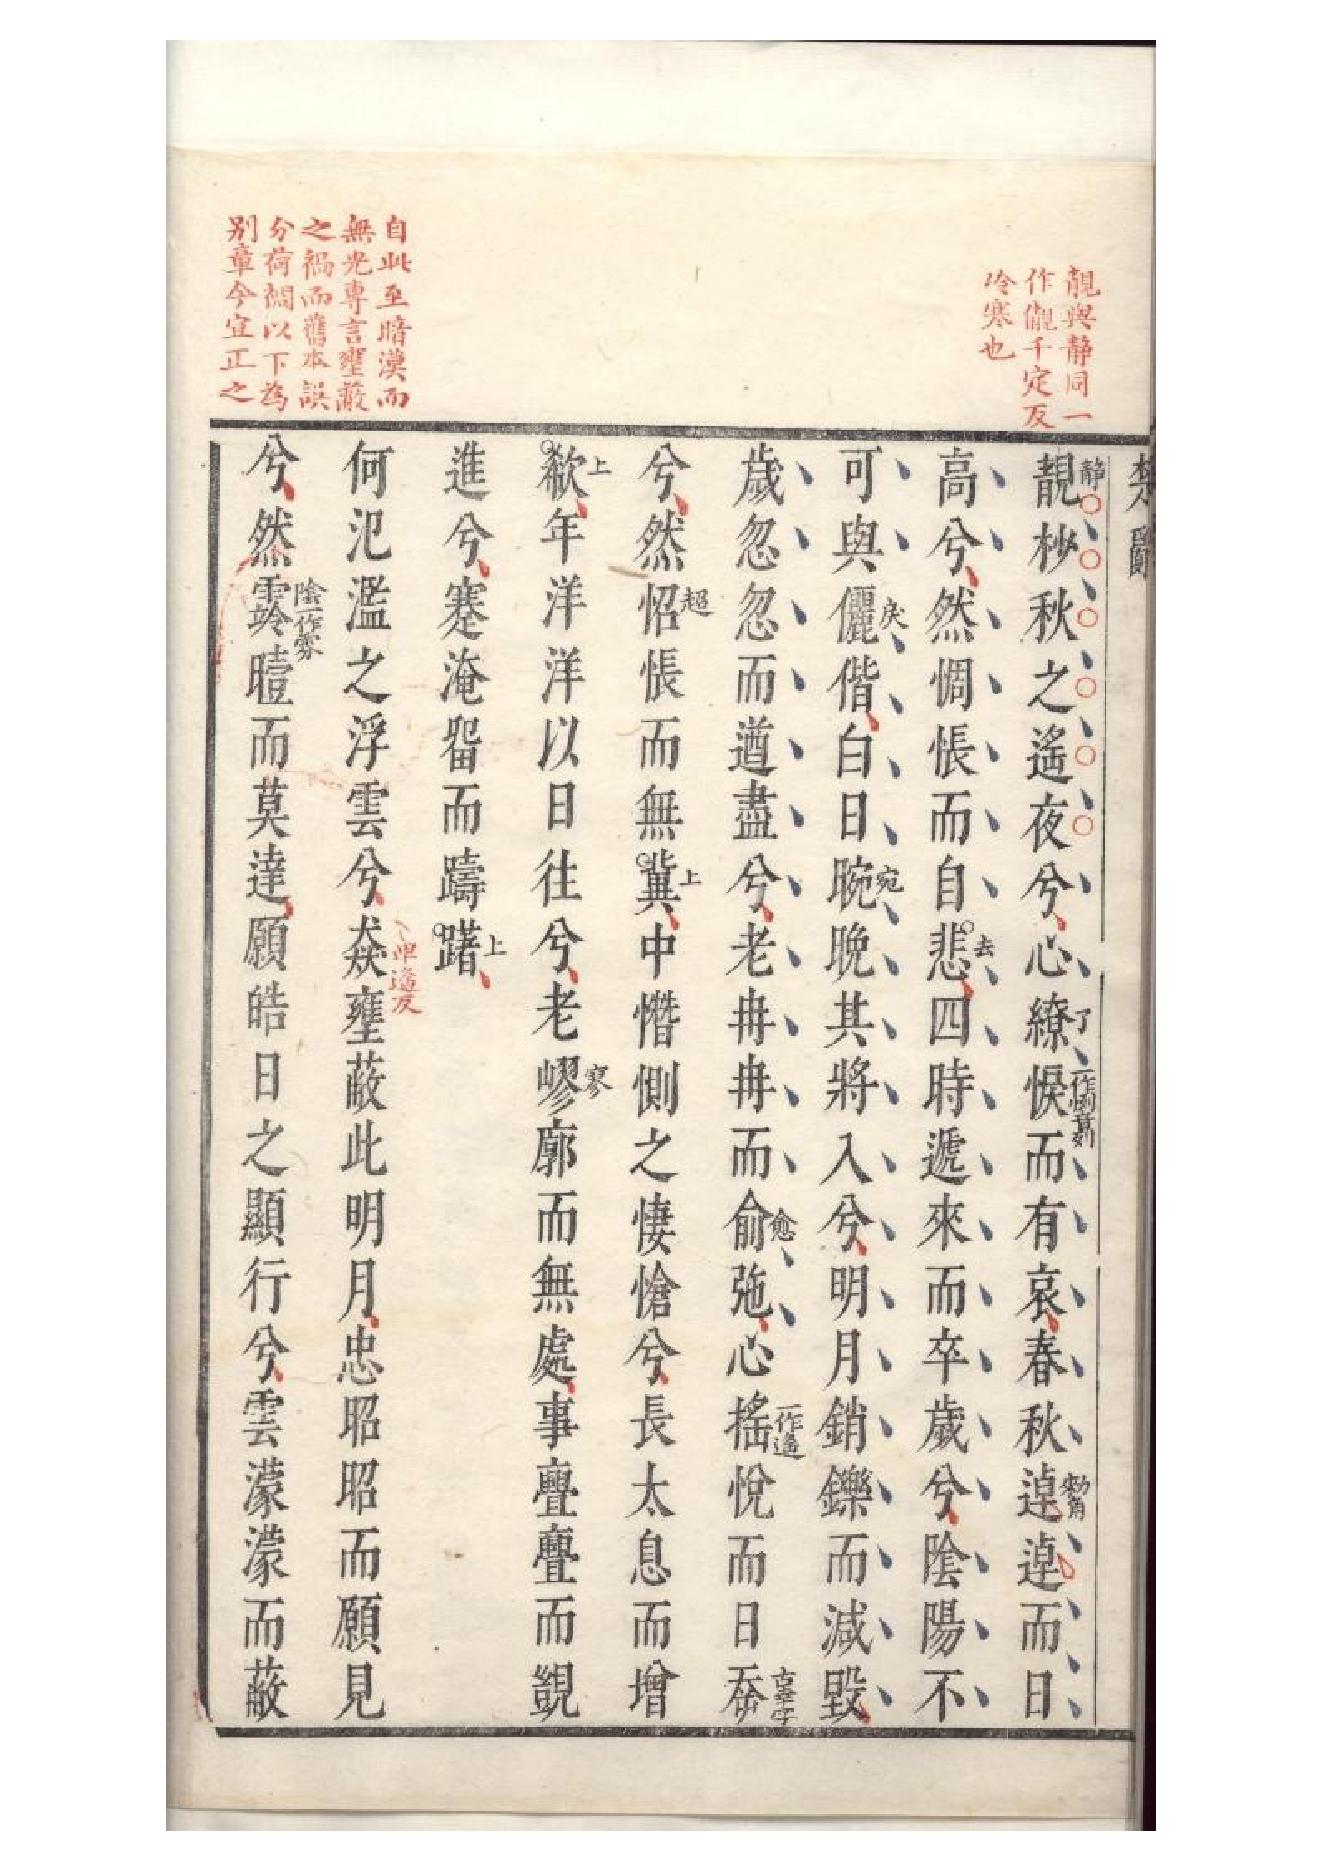 靚與靜同一
作儬千定反
冷寒也
自此至暗漠而
無光專言壅蔽
之禍而舊本誤
分荷裯以下為
別章今宜正之
楚辭
靚杪秋之遙夜兮心繚悷而有哀春秋逴逴而日
靜
了
一作惻
勑角
高兮然惆悵而自悲四時遞來而卒歲兮陰陽不
去
可與儷偕白日晼晚其將入兮明月銷鑠而減毀
戾
宛
歲忽忽而遒盡兮老冉冉而俞弛心搖悅而日㚏
愈
一作遙
古幸字
兮然怊悵而無冀中憯惻之悽愴兮長太息而增
超
上
欷年洋洋以日往兮老嵺廓而無處事亹亹而覬
上
寥
進兮蹇淹畱而躊躇
上
何氾濫之浮雲兮猋壅蔽此明月忠昭昭而願見
卑遙反
兮然霠曀而莫達願皓日之顯行兮雲濛濛而蔽
陰一作雺